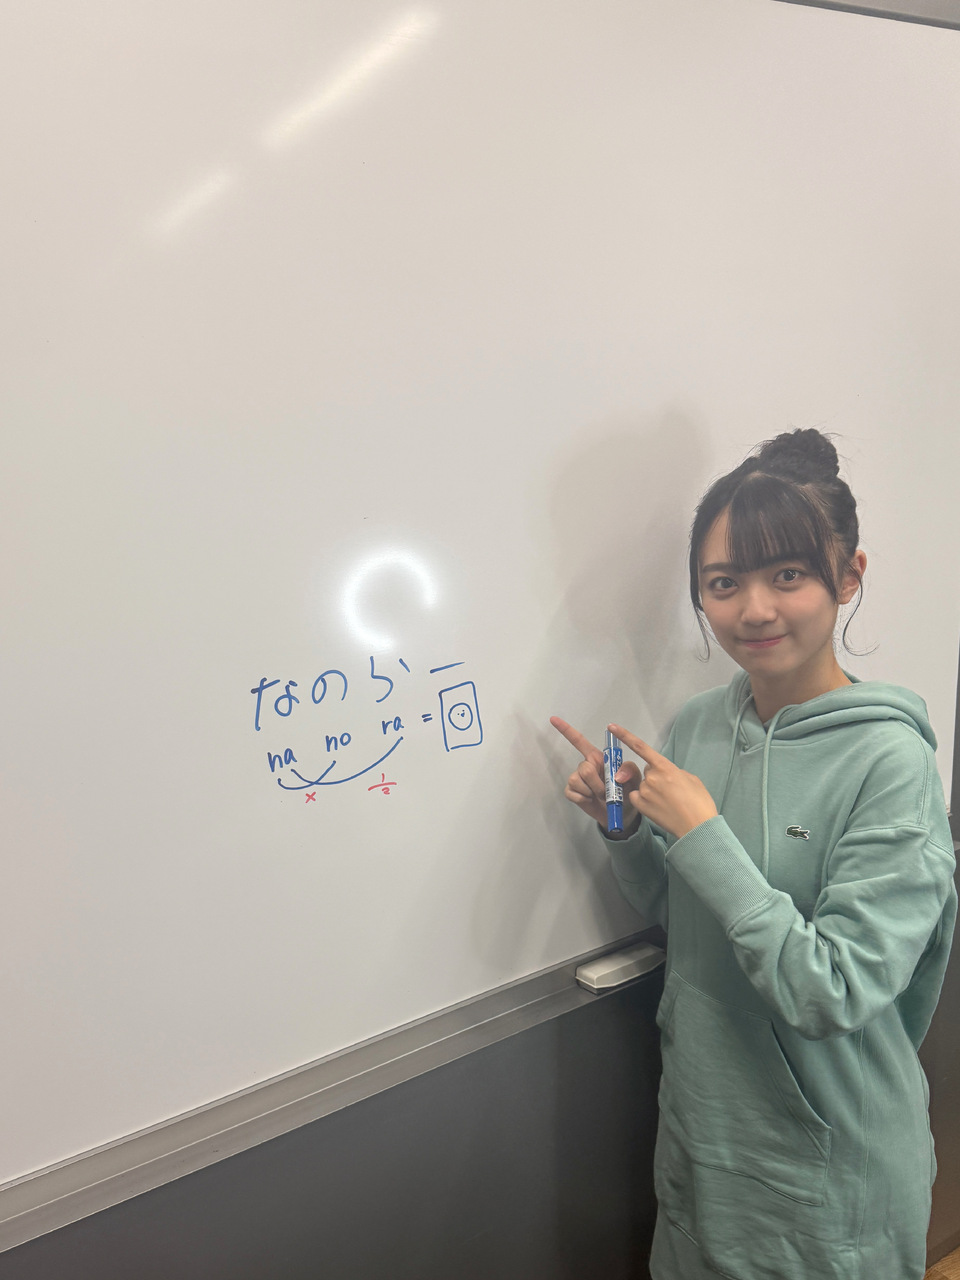 なのらー
na no ra =
× 1/2